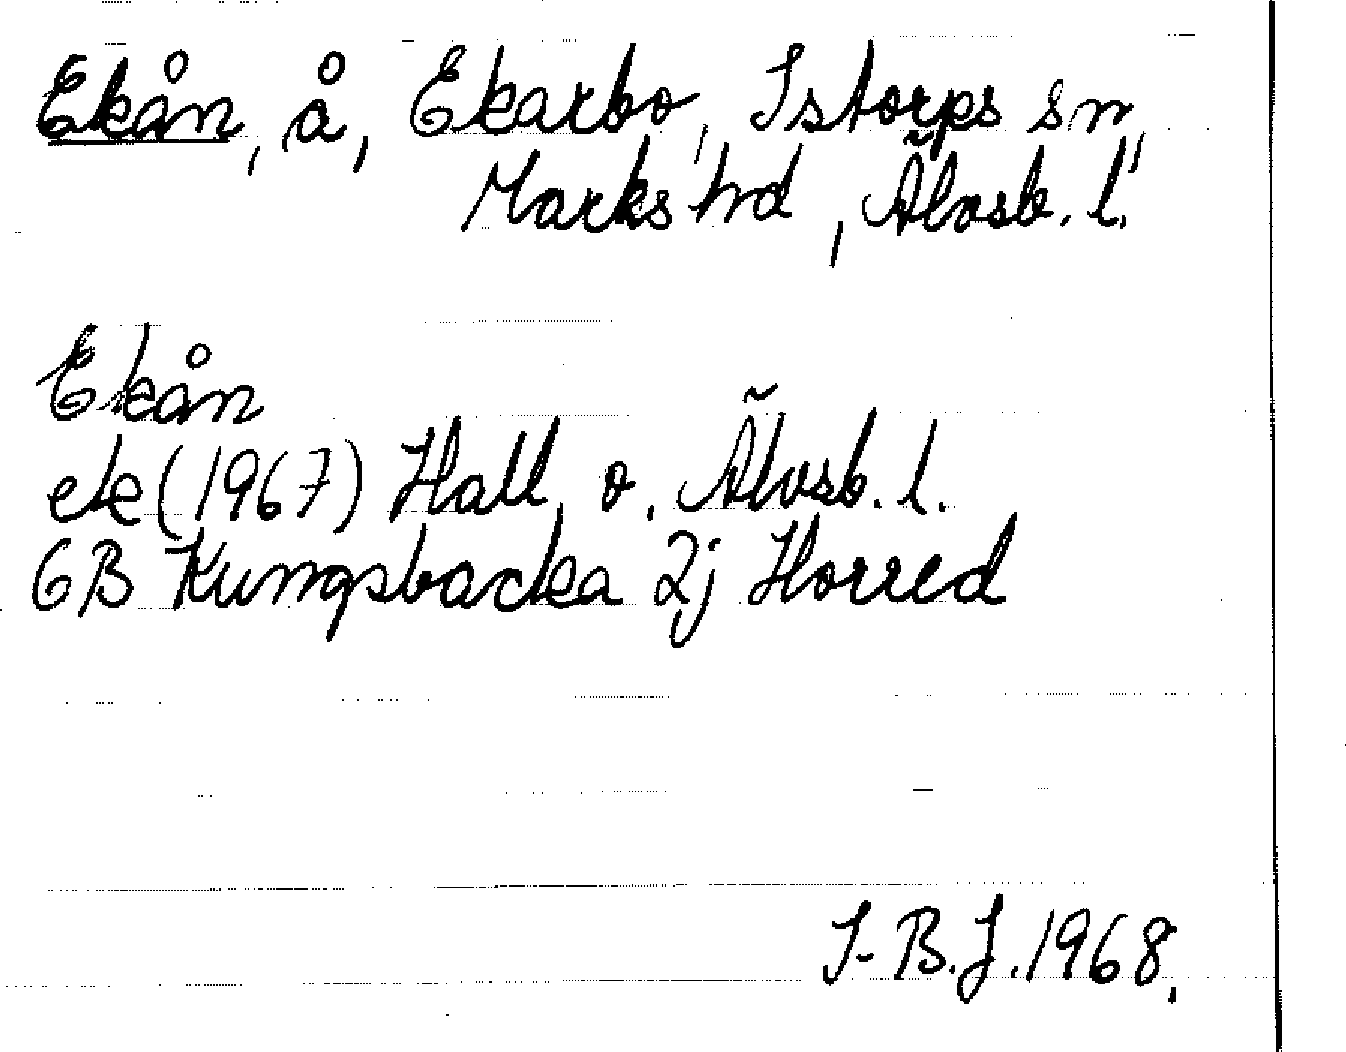 Ekån, å, Ekarbo, Istorps sn,
Marks hd, Älvsb. l.
Ekån
ek (1967) Hall. o. Älvsb. l.
6B Kungsbacka 2j Horred
I-B.J. 1968.